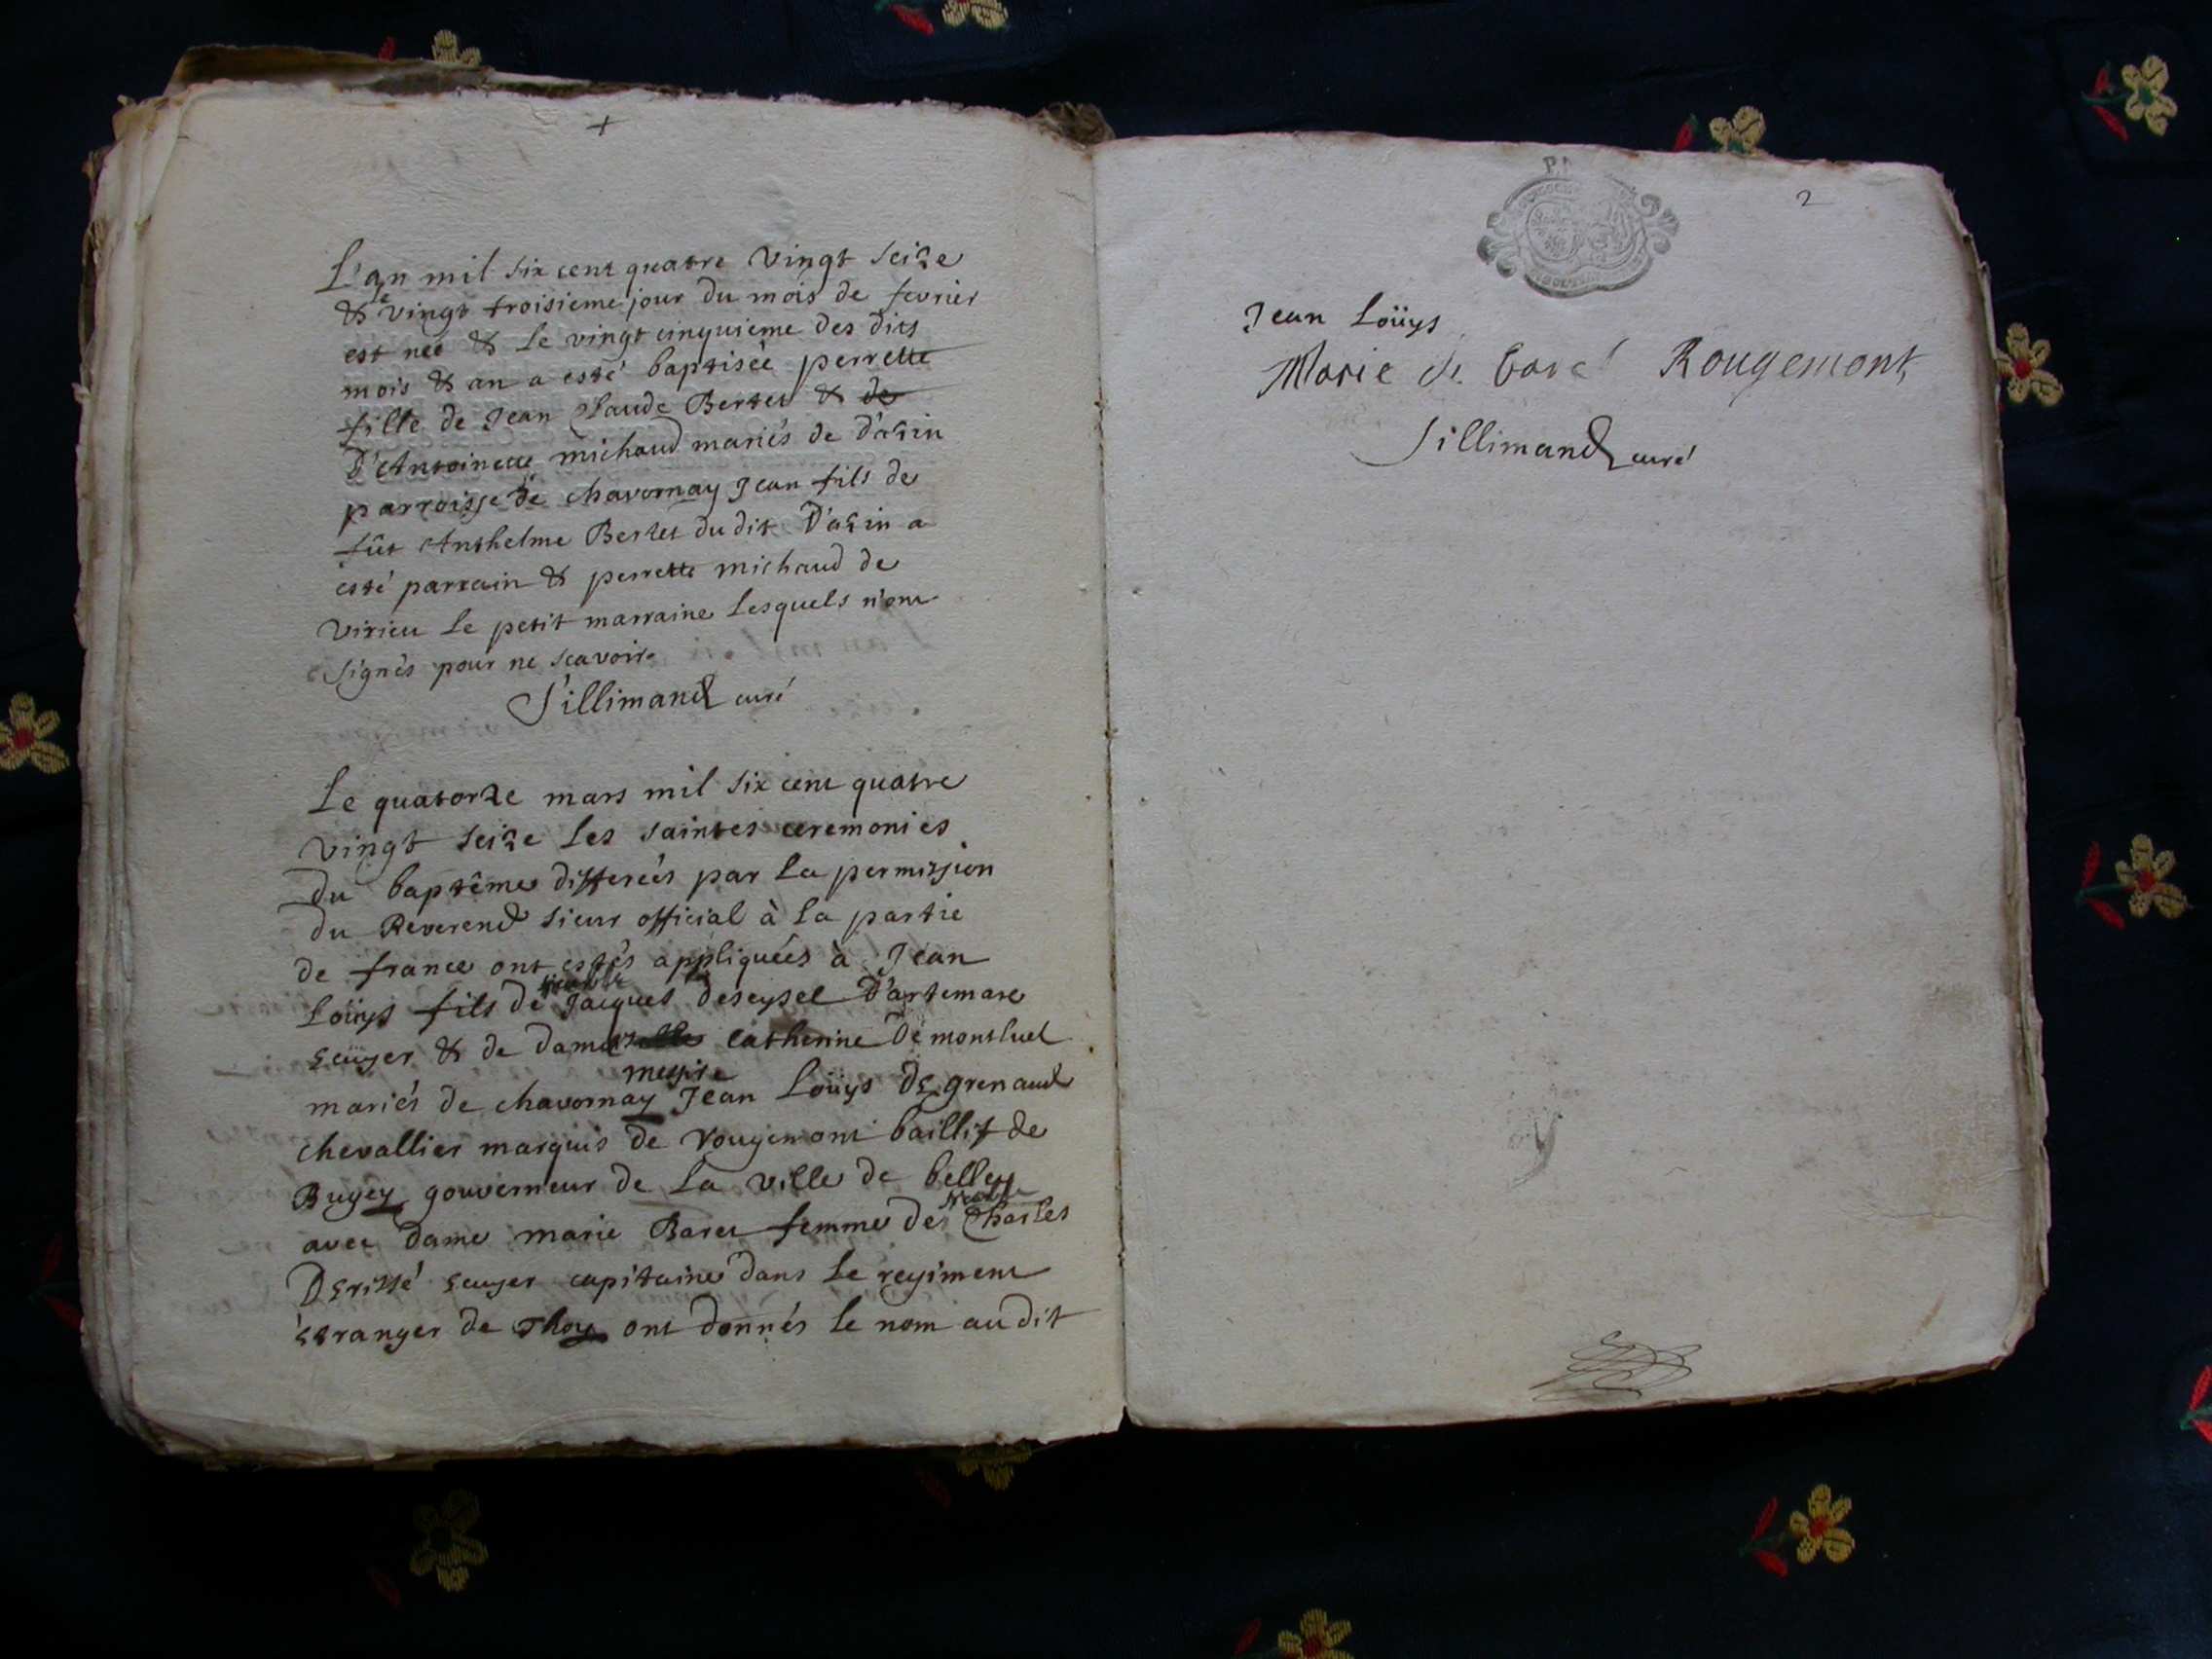 +
L'an mil six cent quatre vingt seize
& le vingt troisieme jour du mois de fevrier
est neé & le vingt cinquieme des dits
mois & an a esté baptiseé perrette
fille de Jean Claude Bertet & de
D'Antoinette michaud mariés de D'azin
parroisse de chavornay Jean fils de
fût Anthelme Bertet du dit D'azin a
esté parrain & perrette michaud de
virieu le petit marraine lesquels n'ont
signés pour ne scavoir
Sillimand curé
Le quatorze mars mil six cent quatre
vingt seize les saintes ceremonies
du baptême differeés par la permission
du Reverend sieur official à la partie
de france ont estés appliqueés à Jean
Loüys fils de noble Jacques deseysel D'artemare
Ecüyer & de dame catherine De montluel
mariés de chavornay messire Jean Loüys DE grenaud
chevallier marquis de rougemont baillif de
Bugey gouverneur de la ville de belley
avec dame marie Baret femme de noble Charles
DErissé Ecuyer capitaine dans le regiment
Etranger de Thoy ont donnés le nom au dit
2
Jean Loüys
Marie de Rougemont
Sillimand curé